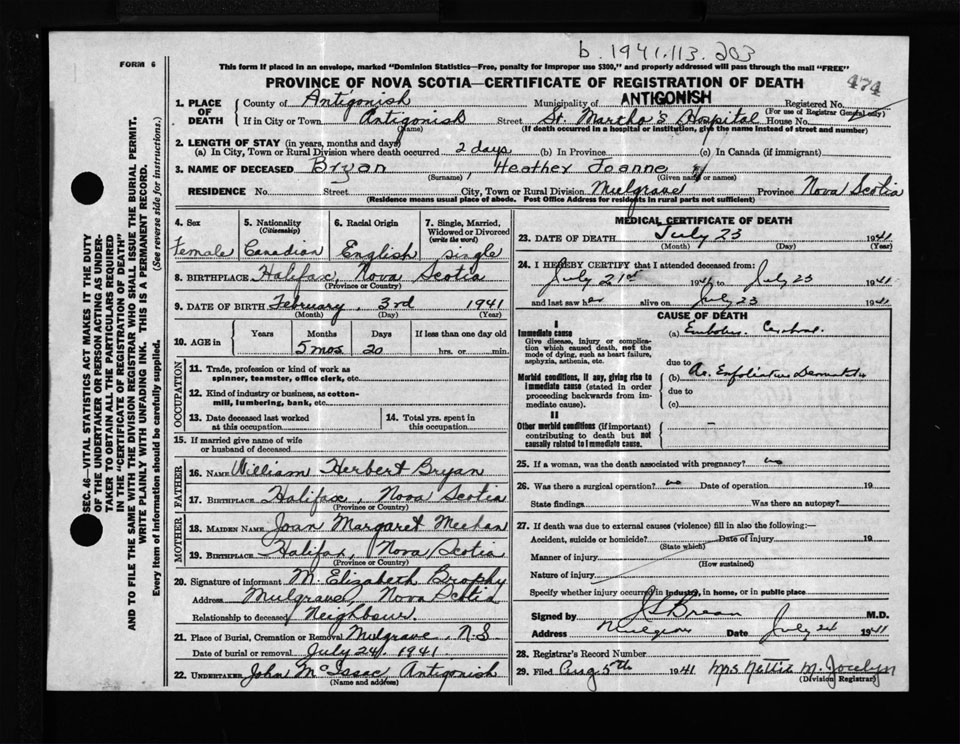 b. 1941.113.203
FORM 6
This form if placed in an envelope, marked "Dominion Statistics—Free, penalty for improper use $300," and properly addressed will pass through the mail "FREE"
PROVINCE OF NOVA SCOTIA—CERTIFICATE OF REGISTRATION OF DEATH
474
1. PLACE OF DEATH
County of Antigonish Municipality of ANTIGONISH Registered No.
(For use of Registrar General only)
If in City or Town Antigonish Street St. Martha's Hospital House No.
(Name) (If death occurred in a hospital or institution, give the name instead of street and number)
2. LENGTH OF STAY (in years, months and days)
(a) In City, Town or Rural Division where death occurred 2 days (b) In Province (c) In Canada (if immigrant)
3. NAME OF DECEASED Bryan, Heather Joanne
(Surname) (Given name or names)
RESIDENCE No. Street City, Town or Rural Division Mulgrave Province Nova Scotia
(Residence means usual place of abode. Post Office Address for residents in rural parts not sufficient)
4. Sex Female
5. Nationality (Citizenship) Canadian
6. Racial Origin English
7. Single, Married, Widowed or Divorced (write the word) single
8. BIRTHPLACE Halifax, Nova Scotia
(Province or Country)
9. DATE OF BIRTH February, 3rd 1941
(Month) (Day) (Year)
10. AGE in Years Months Days If less than one day old
5 mos. 20 hrs. or min.
OCCUPATION
11. Trade, profession or kind of work as spinner, teamster, office clerk, etc.
12. Kind of industry or business, as cotton-mill, lumbering, bank, etc.
13. Date deceased last worked at this occupation
14. Total yrs. spent in this occupation
15. If married give name of wife or husband of deceased
FATHER
16. NAME William Herbert Bryan
17. BIRTHPLACE Halifax, Nova Scotia
(Province or Country)
MOTHER
18. MAIDEN NAME Joan Margaret Meehan
19. BIRTHPLACE Halifax, Nova Scotia
(Province or Country)
20. Signature of informant M. Elizabeth Brophy
Address Mulgrave, Nova Scotia
Relationship to deceased Neighbour.
21. Place of Burial, Cremation or Removal Mulgrave, N.S
Date of burial or removal July 24, 1941
22. UNDERTAKER John McIsaac, Antigonish
(Name and address)
MEDICAL CERTIFICATE OF DEATH
23. DATE OF DEATH July 23 1941
(Month) (Day) (Year)
24. I HEREBY CERTIFY that I attended deceased from:
July 21st 1941 to July 23 1941
and last saw her alive on July 23 1941
CAUSE OF DEATH
I
Immediate cause
Give disease, injury or complication which caused death, not the mode of dying, such as heart failure, asphyxia, asthenia, etc.
(a) Embolus. Cerebral.
due to
Morbid conditions, if any, giving rise to immediate cause (stated in order proceeding backwards from immediate cause).
(b) Ac. Exfoliative Dermatitis
due to
(c)
II
Other morbid conditions (if important) contributing to death but not causally related to immediate cause.
25. If a woman, was the death associated with pregnancy? no
26. Was there a surgical operation? no Date of operation 19
State findings Was there an autopsy?
27. If death was due to external causes (violence) fill in also the following:—
Accident, suicide or homicide? Date of injury 19
(State which)
Manner of injury
(How sustained)
Nature of injury
Specify whether injury occurred in industry, in home, or in public place
Signed by M.D.
Address Mulgrave Date July 24 1941
28. Registrar's Record Number
29. Filed Aug 5th 1941 Mrs Nellie M. Jocelyn
(Division Registrar)
SEC. 46—VITAL STATISTICS ACT MAKES IT THE DUTY
OF THE UNDERTAKER OR PERSON ACTING AS UNDER-
TAKER TO OBTAIN ALL THE PARTICULARS REQUIRED
IN THE "CERTIFICATE OF REGISTRATION OF DEATH"
AND TO FILE THE SAME WITH THE DIVISION REGISTRAR WHO SHALL ISSUE THE BURIAL PERMIT.
WRITE PLAINLY WITH UNFADING INK. THIS IS A PERMANENT RECORD.
Every item of Information should be carefully supplied. (See reverse side for instructions.)